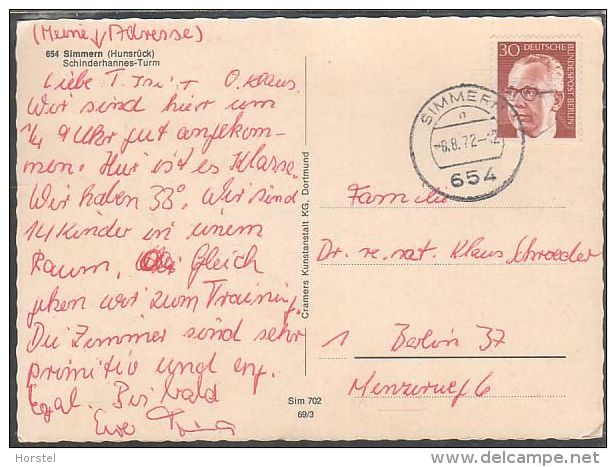 (Meine Adresse)
654 Simmern (Hunsrück)
Schinderhannes-Turm
Liebe T. Iri + O. Klaus.
Wir sind hier um
1/4 9 Uhr gut angekom-
men. Hier ist es Klasse.
Wir haben 33°. Wir sind
14 Kinder in einem
Raum, Gleich
gehen wir zum Training.
Die Zimmer sind sehr
primitiv und
Bis bald
Eure
Sim 702
69/3
Cramers Kunstanstalt KG, Dortmund
30 DEUTSCHE
BUNDESPOST BERLIN
SIMMERN
a
-8.8.72-12
654
Familie
Dr. re. nat. Klaus Schroeder
1 Berlin 37
6
Horstel
www.delcampe.net